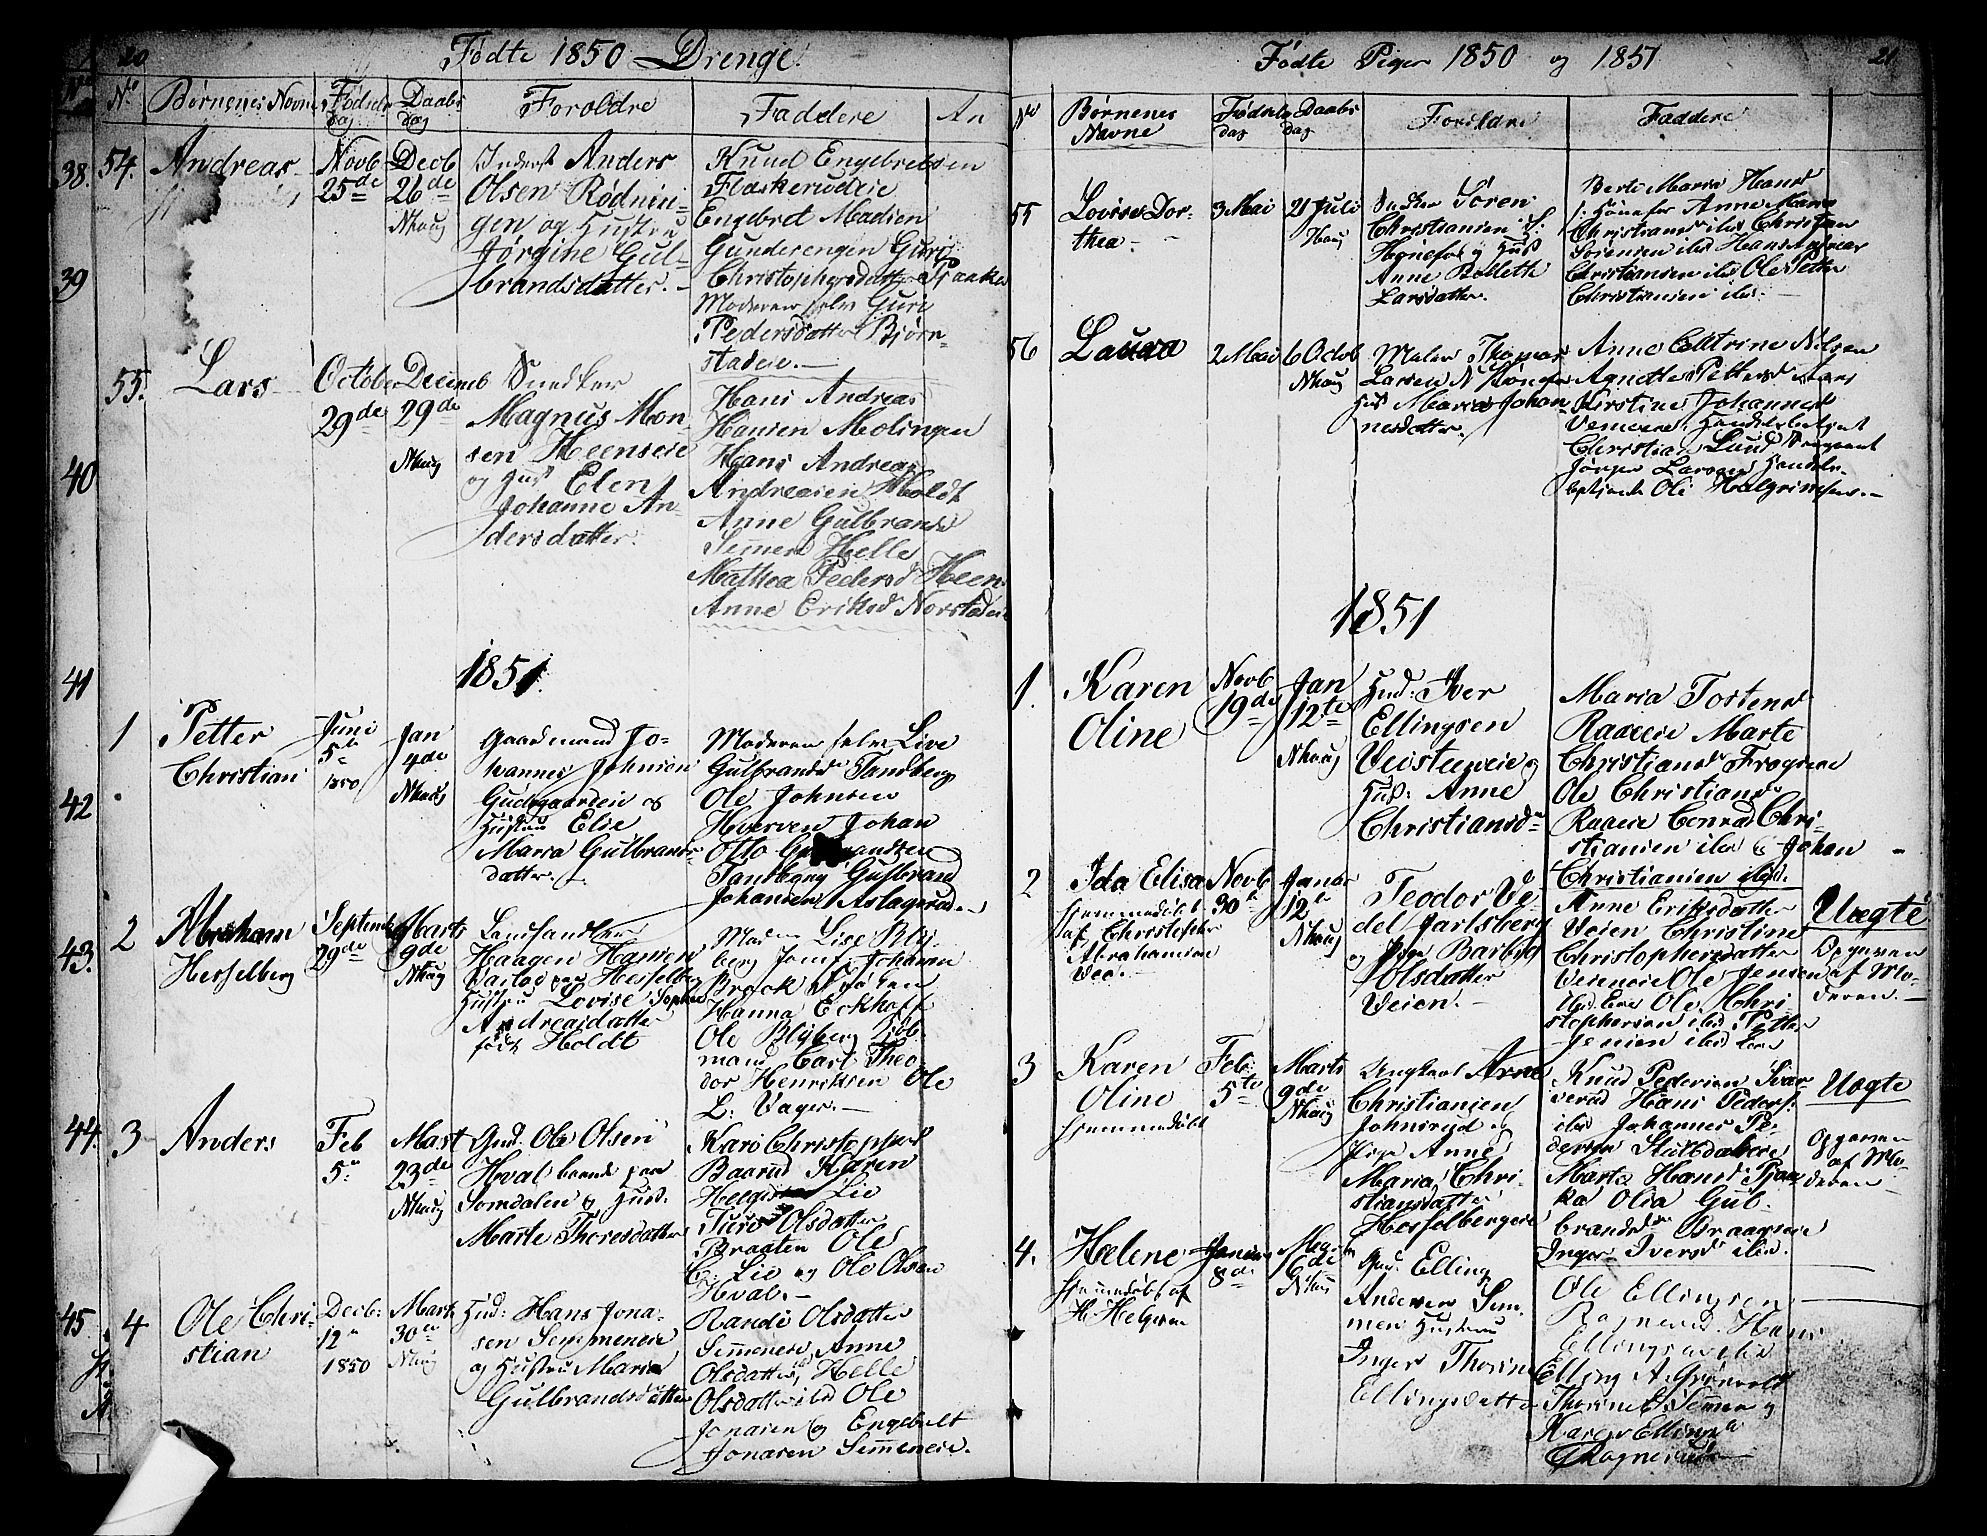 20
Fødte 1850 Drenge
No
Børnenes Navne
Fødsels
dag
Daabs
dag
Foroldre
Faddere
An
38.
39
40
41
42
43.
44.
45
54.
Andreas
Novb
25de
Decb
26de
Nhoug
Anders
Olsen Rødnin-
gen og Hustru
Jørgine Gul-
brandsdatter.
Knud Engebretsen
Flaskerudeie
Engebret Madsen
Gunderengen Guri
Christophersdatter
Moderen selv Guri
Pedersdatter Bjørn-
stadeie.
55.
Lars
October
29de
Decemb
29de
Nhoug
Snedker
Magnus Mon-
sen Heenseie
og Hus Elen
Johanne An-
dersdatter.
Hans Andreas
Hansen Molingen
Hans Andreas
Andreasen Holdt
Anne Gulbrands
Semmen Helle
Mathea Pedersd Heen
Anne Eriksd
1851.
1
Petter
Christian
Juni
5te
1850
Jan
4de
Nhoug
Gaardmand Jo-
hannes Johnsen
og
Hustru Elie
Maria Gulbrands-
datter.
Moderen selv Live
Gulbrandsd Tandberg
Ole Johnsen
Hverven Johan
Otto
Tandberg Gulbrand
Johansen Aslagsrud
2
Abraham
Hesselberg
Septemb
29de
Marts
9de
Nhoug
Landhandler
Haagen Hansen
Hesselb
Hustru Lovise Sophie
Andreasdatter
født Holdt
Lise Bly-
berg Jomf. Johanne
Brock
Hanna Eckhoff
Ole Blyberg
mand Carl Theo-
dor Henriksen Ole
L: Vager.
3
Anders
Feb
5te
Mart
23de
Nhoug
Gud. Ole Olsen
Hval boende paa
Somdalen og Hust.
Marte Thoresdatter
Kari Christophers
Baarud Karen
Lie
Turi Olsdatter
Braaten Ole
Lie og Ole Olsen
Hval.
4
Ole Chri-
stian
Decb:
12te
1850
Marts
30te
Nhoug
Hud: Hans Jona-
sen Semmeneie
og Hustru Maria
Gulbrandsdatter
Randi Olsdatter
Semmeneie, Anne
Olsdatter ibd, Helle
Olsdatter ibd Ole
Jonasen og Engebret
Jonasen Semmeneie.
Fødte Piger 1850 og 1851
21
No
Børnenes
Navne
Fødsels
dag
Daabs
dag
Foreldre
Faddere
55
Lovise Dor-
thea.
3 Mai
21 Juli
Houg
Snedker Søren
Christiansen i S:
Hønefos og Hust
Anne Bollette
Larsdatter.
Berte Maria Hansd
S: Hønefos Anne Marie
Christiansd ibd Christian
Sørensen ibd Hans
Christiansen ibd Ole Petter
Christiansen ibd.
56
Laura
2 Mai
6 Octob
Nhoug
Maler Thomas
Larsen N Hønefos
Hus Maria Johan-
nesdatter.
Anne Cattrine Nilsen
Agnette Pettersd
Kirstine Johannesd
Handelsbetjent
Christian Lund
Jørgen Larsen Handels-
betjent Ole Halgrimsen.
1851
1.
Karen
Oline
Novb
19de
Jan
12te
Nhoug
Hud: Iver
Ellingsen
og
Hus: Anne
Christiansd.
Maria Tostensd
Raaeeie Marte
Christiansd Frogneie
Ole Christians
Raaeeie Conrad Chri-
stiansen ibd og Johan
Christiansen ibd.
2
Ida Elisa
Hjemmedøbt
af Christopher
Abrahamsen
Vee.
Novb
30te
Januar
12te
Nhoug
Teodor Ve-
del Jarlsberg
og Pige Barbra
Olsdatter
Veien.
Anne Eriksdatter
Veien Christine
Christophersdatter
Veieneie Ole Jensen
Ole Chri-
stophersen ibd Petter
Jensen ibd
Uægte
Opgiven
af Mo-
deren.
3
Karen
Oline
Hjemmedøbt
Feb:
5te
Marts
9de
Nhoug
Ungkarl Arne
Christiansen
Johnsrud og
Pige Anne
Maria Chri-
stiansdatter
Hesselbergeie
Knud Pedersen Svar-
verud Hans Peders:
ibd Johannes Pe-
dersen
Marte Hansd
Olia Gul-
brandsd
Inger Iversd ibd.
Uægte
Opgiven
af Mo-
deren
4.
Helene
Hjemmedøbt af
H. Helgesen
Januar
8de
6de
Nhoug
Gud. Elling
Andersen Sem-
men Hustrue
Inger Thorine
Ellingsdatter
Ole Ellingsen
Ragnerud. Hans
Ellingsen ibd
Elling A. Grønvold
Semmen og
Karen Ellingsd
Ragnerud